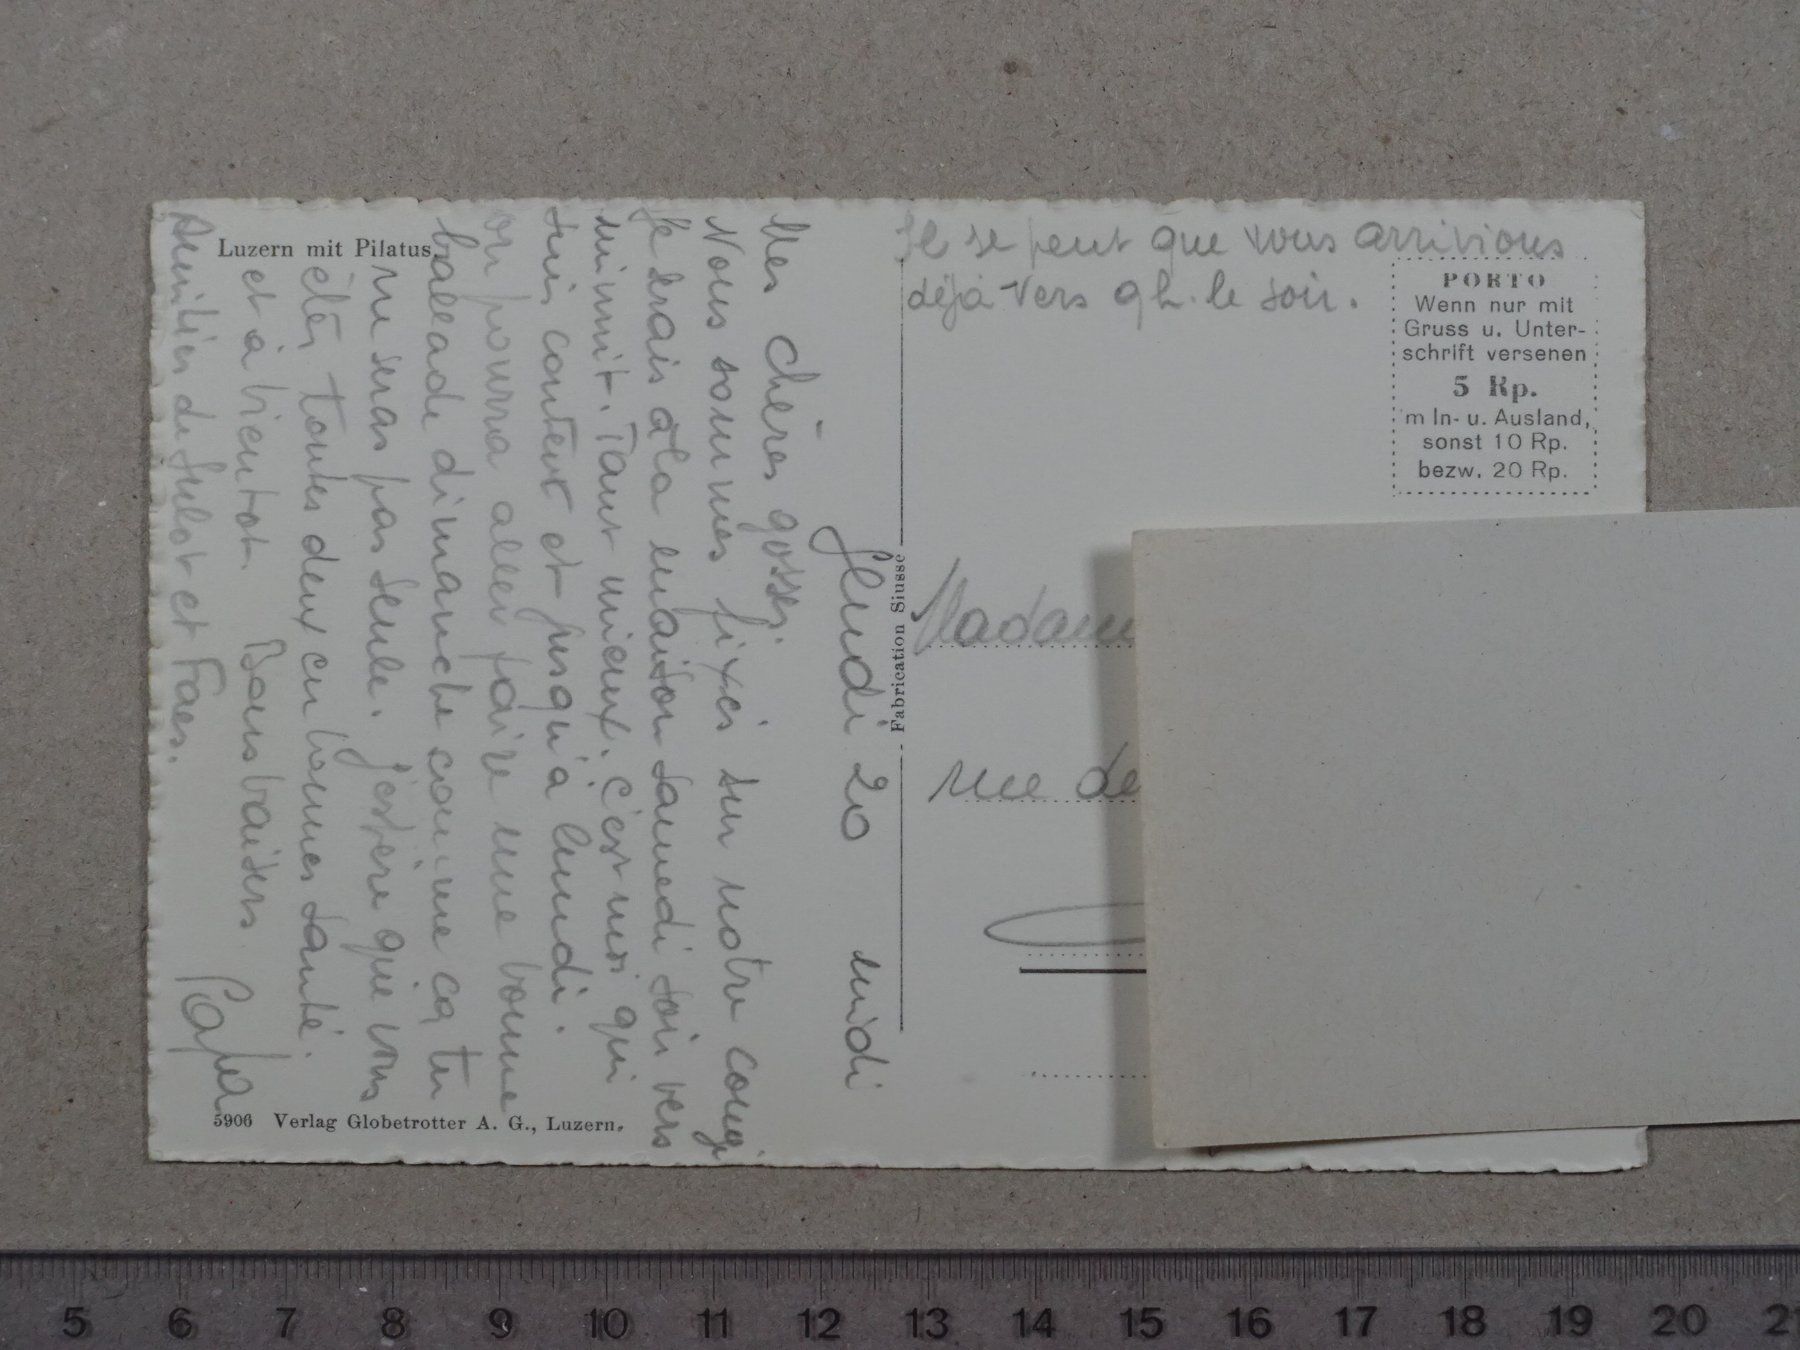 Luzern mit Pilatus.
Jeudi 20 midi
Mes chères gosses.
Nous sommes fixés sur notre congé
Je serais à la maison samedi soir vers
minuit. Tant mieux. C'est moi qui
suis content et jusqu'à lundi.
on pourra aller faire une bonne
ballade dimanche comme ça tu
ne seras pas seule. J'espère que vous
êtes toutes deux en bonnes santé.
et à bientot. Bons baisers. Papa
Amitiés de Julot et Faes.
5906 Verlag Globetrotter A. G., Luzern.
Fabrication Siusse
Il se peut que nous arrivions
déjà vers 9 h. le soir.
PORTO
Wenn nur mit
Gruss u. Unter-
schrift versenen
5 Rp.
m In- u. Ausland,
sonst 10 Rp.
bezw. 20 Rp.
Madam
rue de
5 6 7 8 9 10 11 12 13 14 15 16 17 18 19 20 21